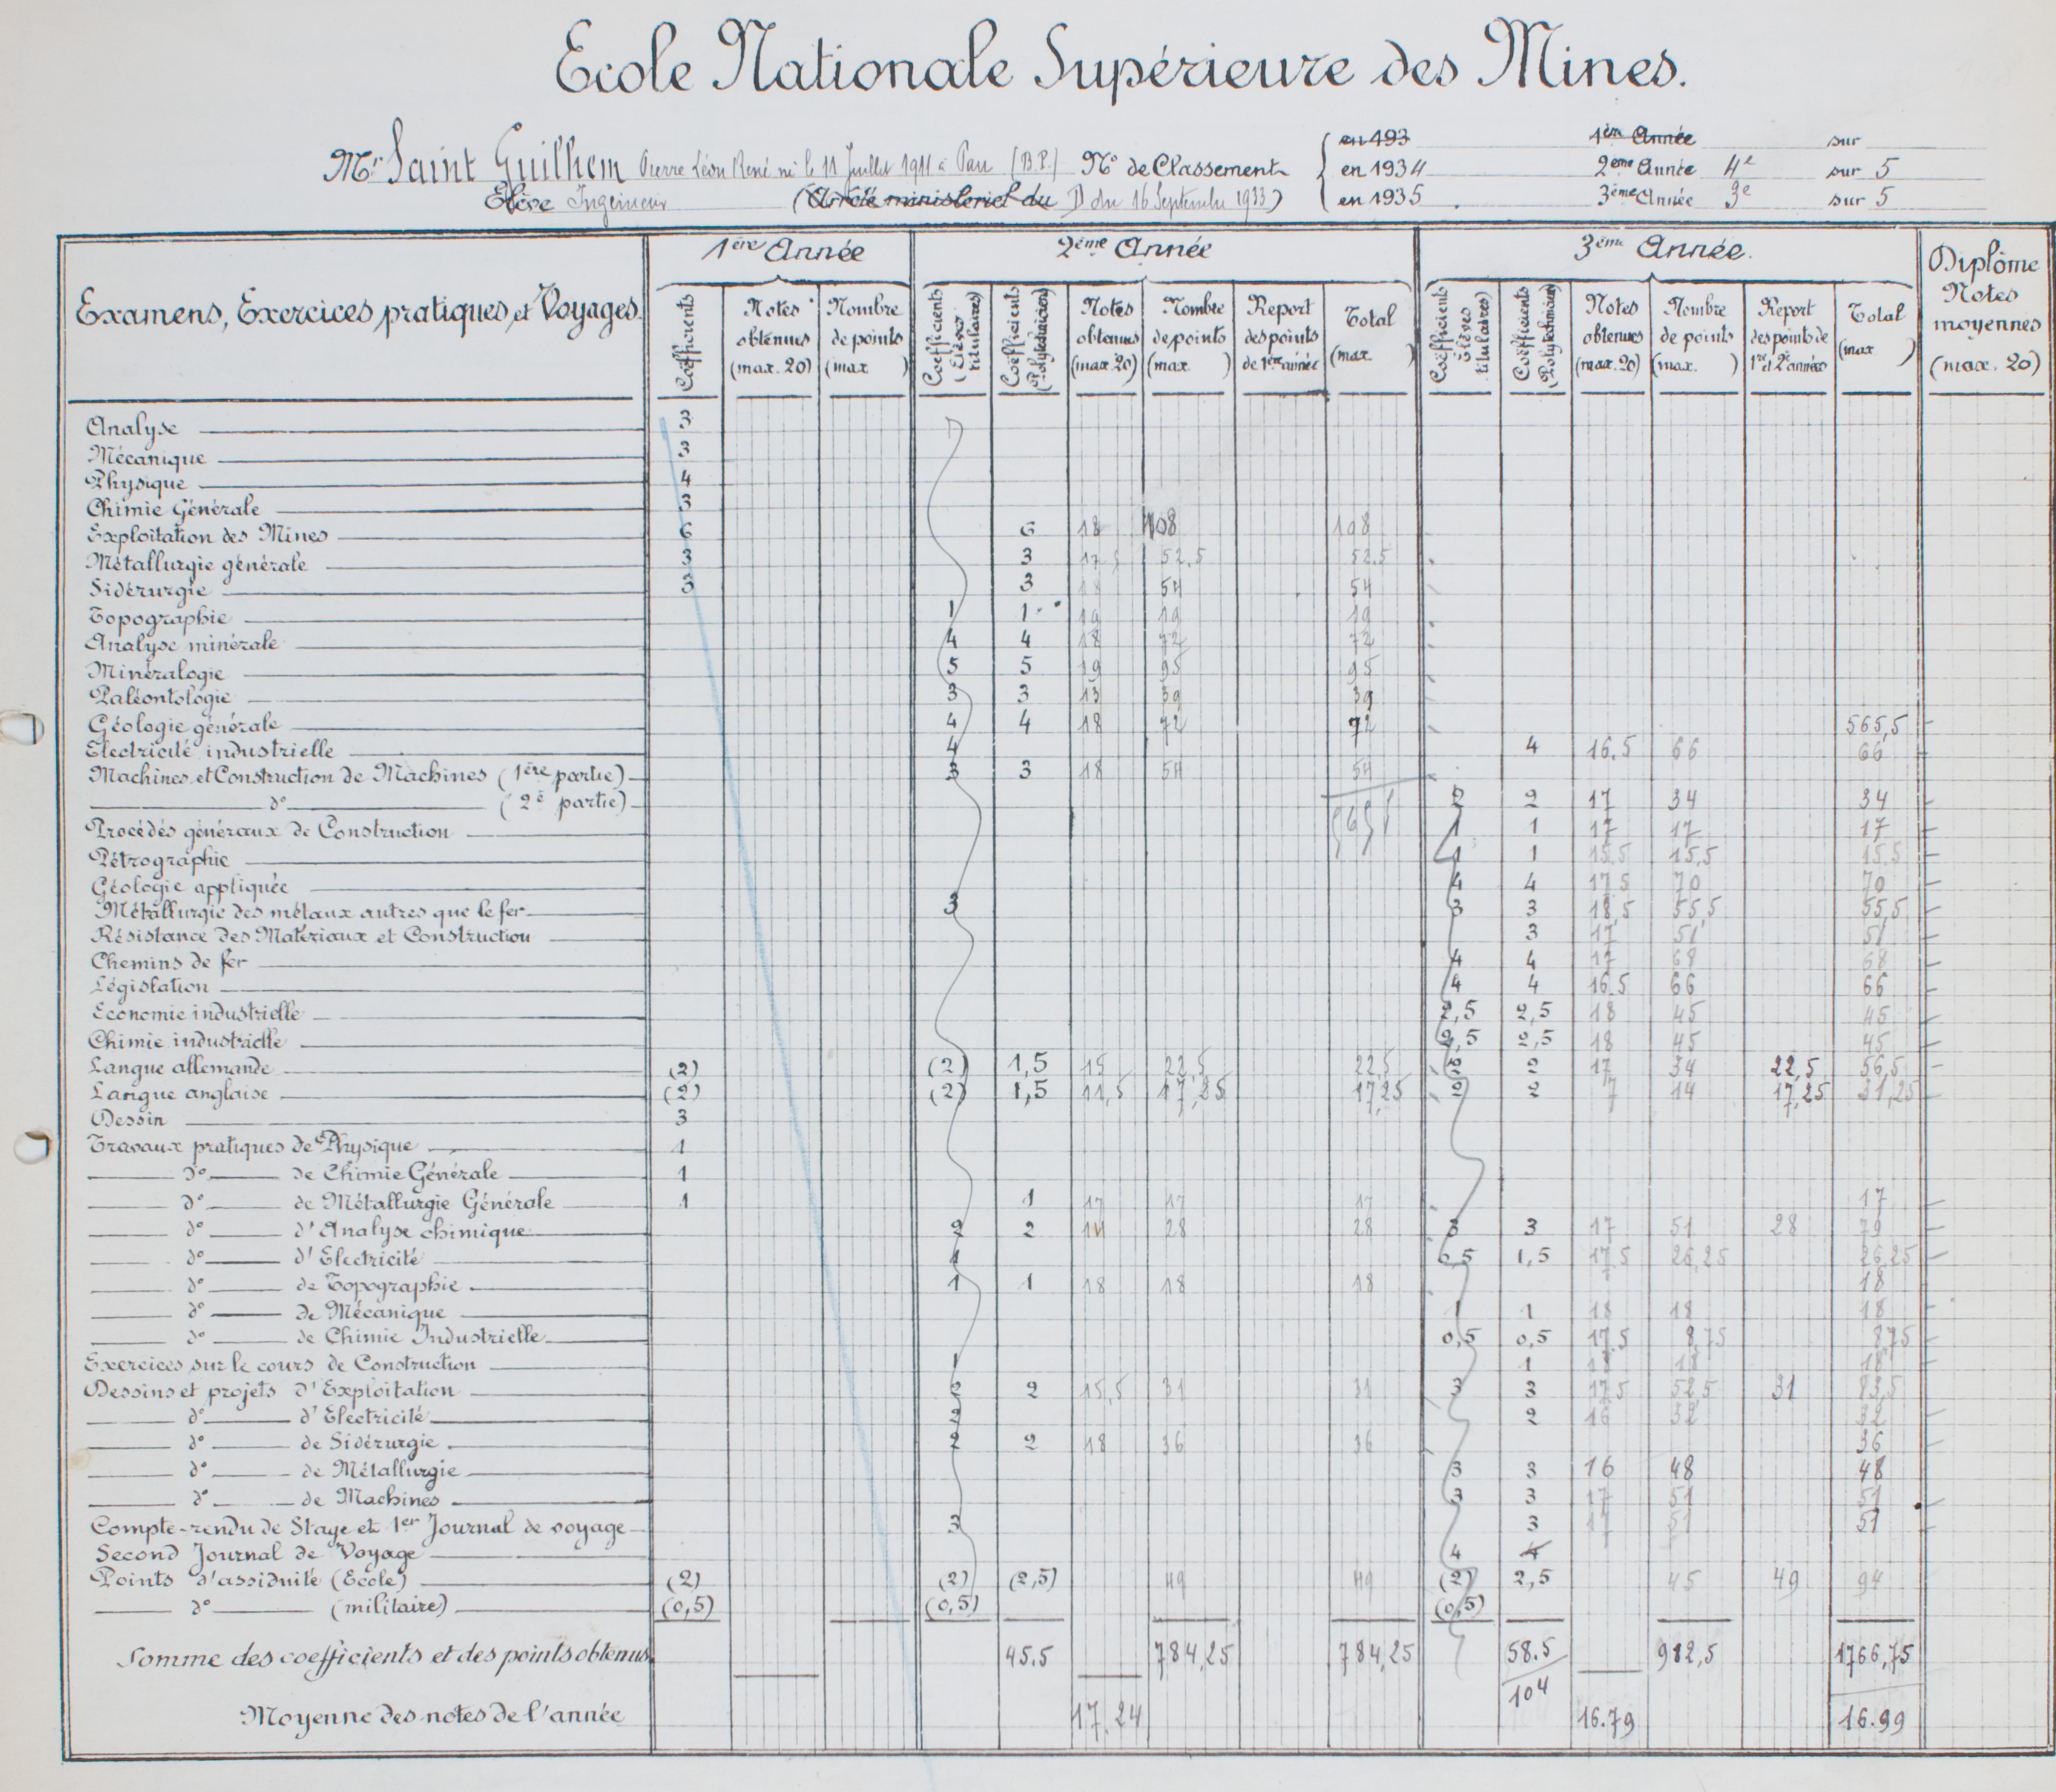 Ecole Nationale Supérieure des Mines.
Mr Saint Guilhem Pierre Léon René né le 11 Juillet 1911 à Pau (B.P.) No de Classement
en 193 1ère Année sur
en 1934 2ème Année 4e sur 5
Elève Ingénieur (Arrêté ministériel du D du 16 Septembre 1933) en 1935 3ème Année 3e sur 5
Examens, Exercices pratiques et Voyages. 1ère Année 2ème Année 3ème Année. Diplôme Notes moyennes (max. 20)
Coëfficients Notes obtenues (max. 20) Nombre de points (max )
Coëfficients (Elèves titulaires) Coëfficients (Polytechniciens) Notes obtenues (max 20) Nombre de points (max. ) Report des points de 1ère année Total (max )
Coëfficients élèves titulaires) Coëfficients (Polytechniciens) Notes obtenues (max. 20) Nombre de points (max. ) Report des points de 1re et 2e années Total (max )
Analyse 3
Mécanique 3
Physique 4
Chimie Générale 3
Exploitation des Mines 6 6 18 108 108
Métallurgie générale 3 3 17,5 52,5 52,5
Sidérurgie 3 3 18 54 54
Topographie 1 1 19 19 19
Analyse minérale 4 4 18 72 72
Minéralogie 5 5 19 95 95
Paléontologie 3 3 13 39 39
Géologie générale 4 4 18 72 72 565,5
Electricité industrielle 4 4 16.5 66 66
Machines et Construction de Machines (1ère partie) 3 3 18 54 54
do (2e partie) 2 2 17 34 34
Procédés généraux de Construction 1 1 17 17 17
Pétrographie 1 1 15,5 15,5 15.5
Géologie appliquée 4 4 17 5 70 70
Métallurgie des métaux autres que le fer 3 3 3 18,5 55,5 55,5
Résistance des Matériaux et Construction 3 17 51 51
Chemins de fer 4 4 17 68 68
Législation 4 4 16.5 66 66
Economie industrielle 2,5 2,5 18 45 45
Chimie industrielle 2,5 2,5 18 45 45
Langue allemande (2) (2) 1,5 15 22,5 22,5 2 2 17 34 22,5 56,5
Langue anglaise (2) (2) 1,5 11,5 17,25 17,25 2 2 7 14 17,25 31,25
Dessin 3
Travaux pratiques de Physique 1
do de Chimie Générale 1
do de Métallurgie Générale 1 1 17 17 17 17
do d'Analyse chimique 2 2 14 28 28 3 3 17 51 28 79
do d'Electricité 1 0,5 1,5 17.5 26,25 26,25
do de Topographie 1 1 18 18 18 18
do de Mécanique 1 1 18 18 18
do de Chimie Industrielle 0,5 0,5 17.5 8,75 8,75
Exercices sur le cours de Construction 1 1 18 18 18
Dessins et projets d'Exploitation 2 2 15,5 31 31 3 3 17.5 52,5 31 83,5
do d'Electricité 2 2 16 32 32
do de Sidérurgie 2 2 18 36 36 36
do de Métallurgie 3 3 16 48 48
do de Machines 3 3 17 51 51
Compte-rendu de Stage et 1er Journal de voyage 3 3 17 51 51
Second Journal de Voyage 4 4
Points d'assiduité (Ecole) (2) (2) (2,5) 49 49 (2) 2,5 45 49 94
do (militaire) (0,5) (0,5) (0,5)
Somme des coefficients et des points obtenus 45.5 784,25 784,25 58.5 982,5 1766,75
104
Moyenne des notes de l'année 17.24 16.79 16.99